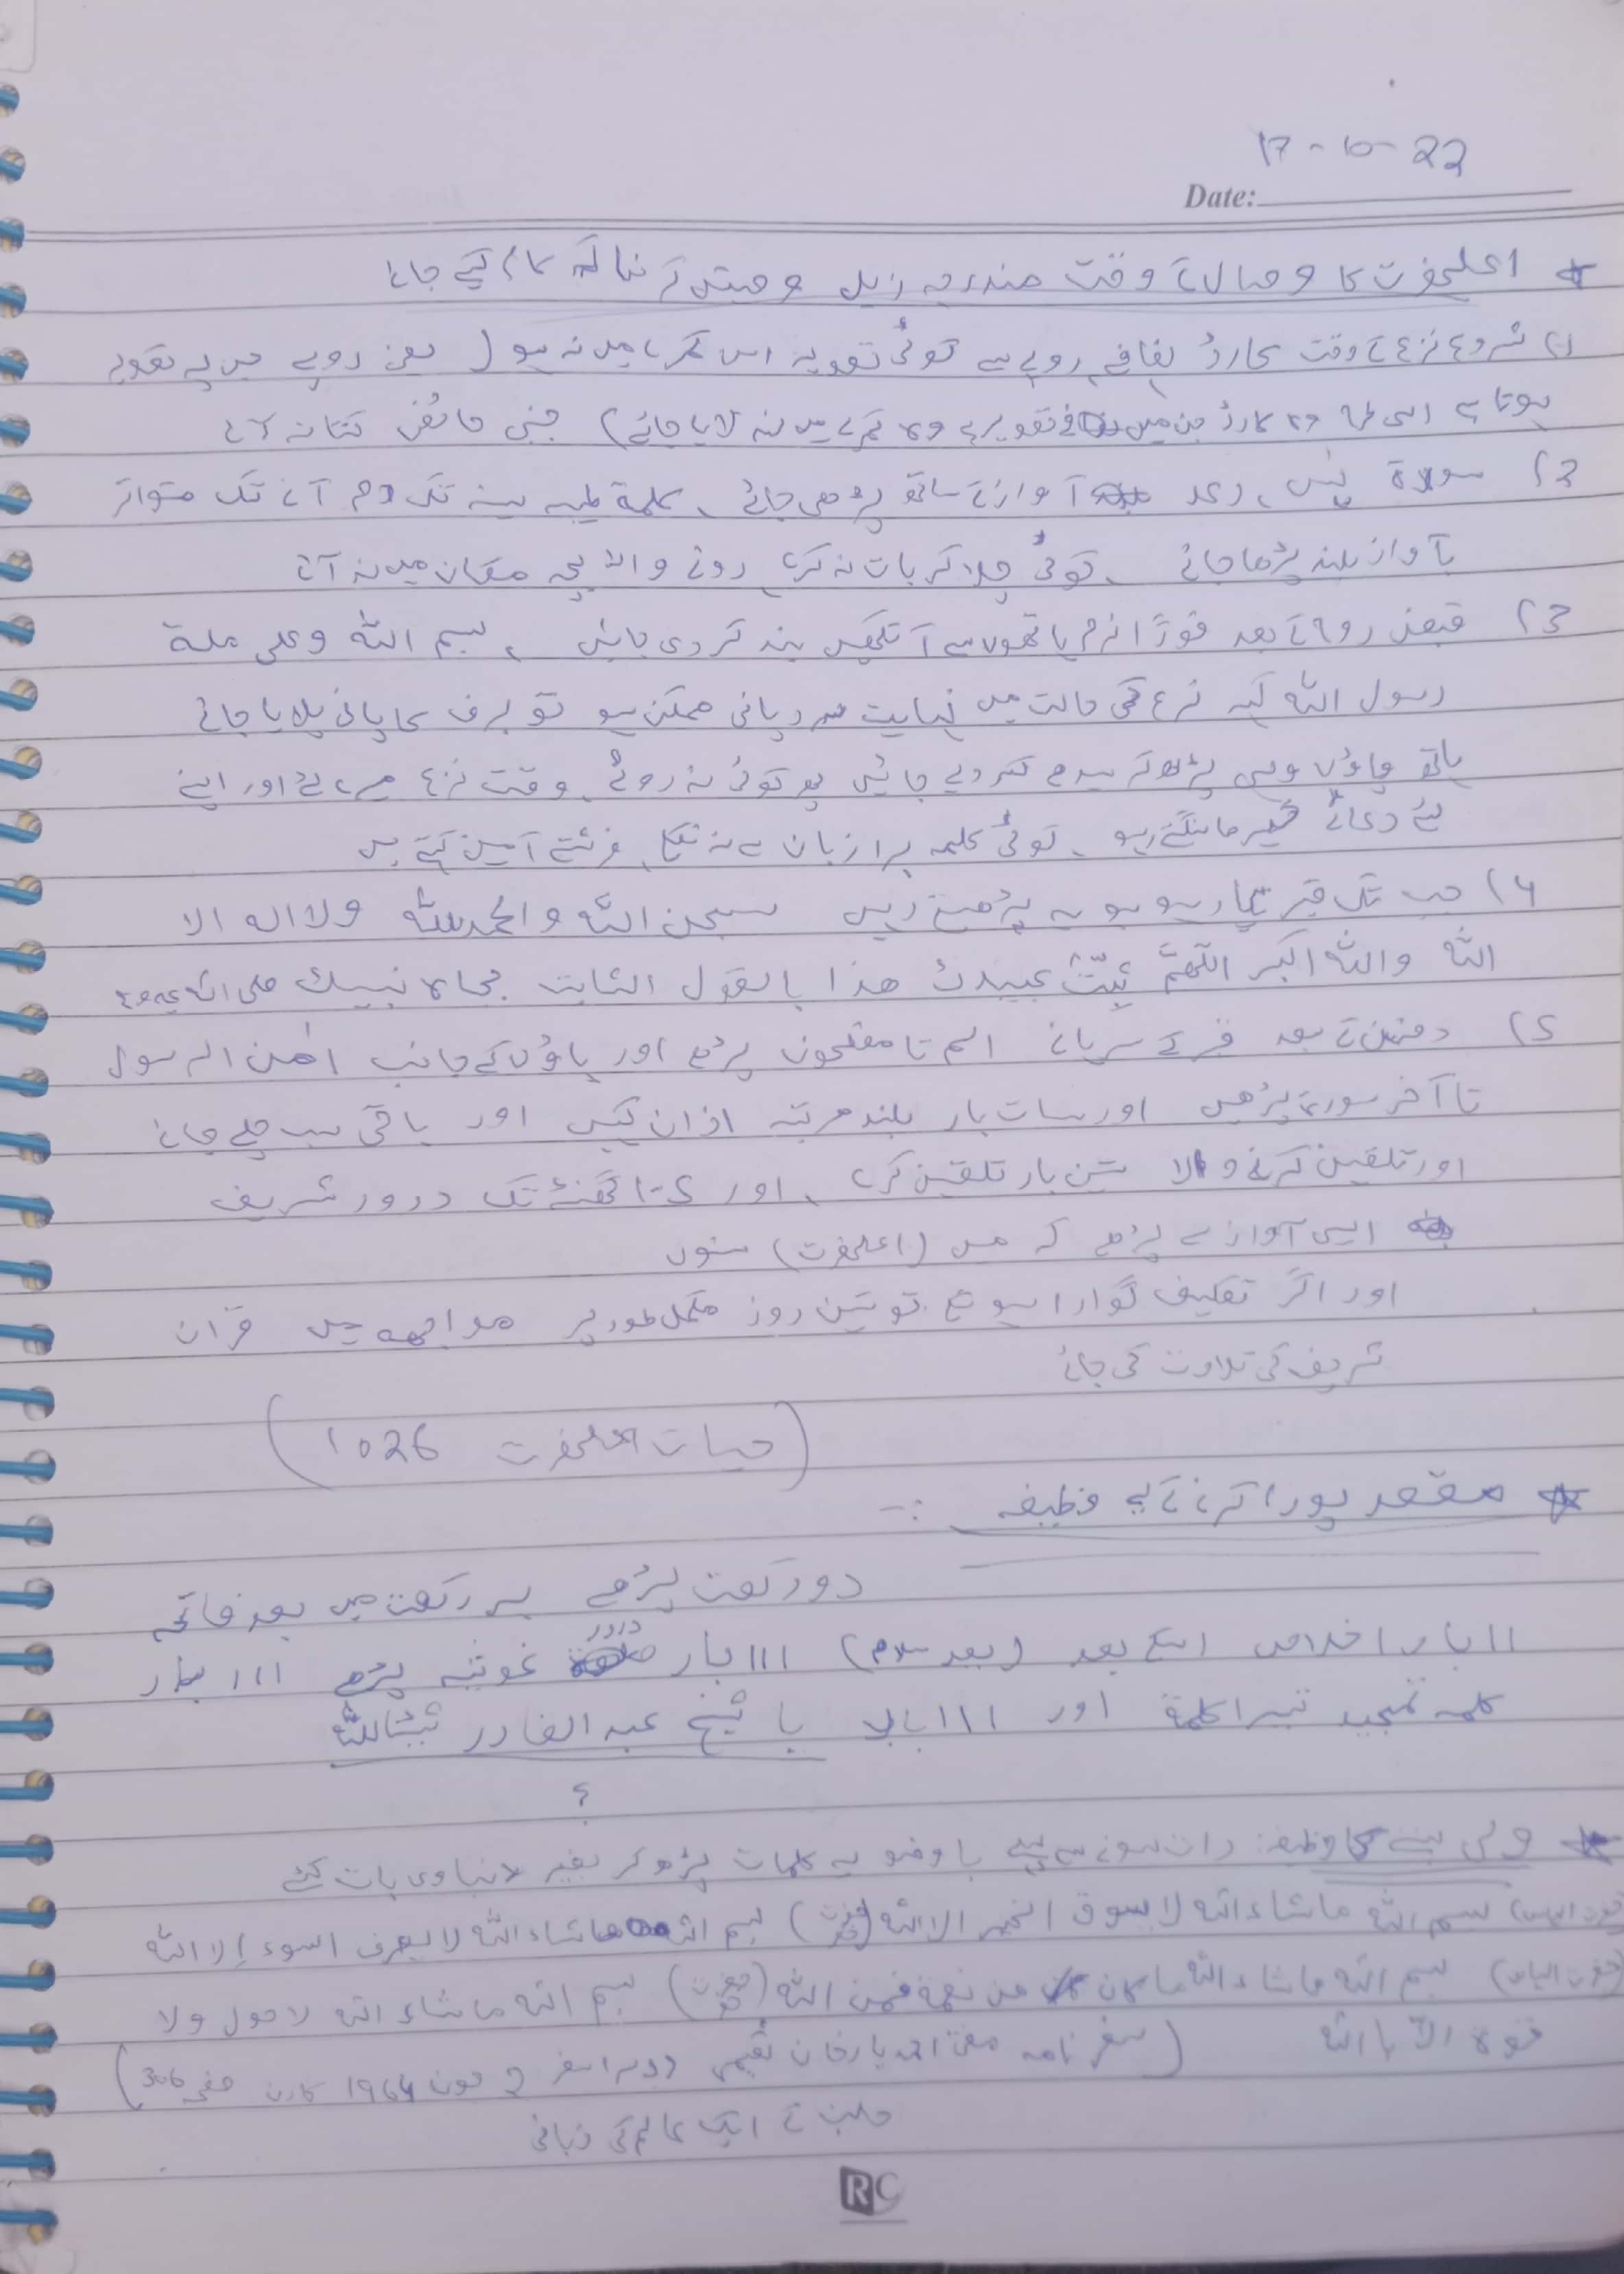 17-10-22
Date:
★ اعلحضرت کا وصال کے وقت مندرجہ ذیل وصیتں کر نا کہ کام کیے جائے
1) شروع نزع کے وقت کارڈ لفافے روپے سے کوئی تصویر اس کمرے میں نہ ہو ( یعنی روپے میں پہ تصویر
ہوتا ہے اسی طرح وہ کارڈ جن میں تصویر ہے وہ کمرے میں نہ لایا جائے) جنبی حائض کتا نہ لائے
2) سورۃ یٰس، رعد آواز کے ساتھ پڑھی جائے ، کلمۃ طیبہ سینہ تک دم آنے تک متواتر
بآواز بلند پڑھا جائے ، کوئی چلا کر بات نہ کرے، رونے والا بچہ مکان میں نہ آئے
3) قبض روح کے بعد فوڑًا نرم ہاتھوں سے آنکھیں بند کر دی جائیں ، بسم اللہ وعلی ملة
رسول اللہ کہہ نزع کی حالت میں نہایت سرد پانی ممکن ہو تو برف کا پانی پلایا جائے
ہاتھ پاؤں وہی پڑھ کر سیدھے کر دیے جائیں پھر کوئی نہ روئے، وقت نزع میرے لئے اور اپنے
لئے دعائے خیر مانگتے رہو ، کوئی کلمہ برا زبان سے نہ نکلے، فرشتے آمین کہتے ہیں
4) جب تک قبر تیار ہو یہ پڑھتے رہیں سبحن اللہ والحمدللہ ولا الہ الا
اللہ واللہ اکبر اللّٰھمَّ ثَبِّتْ عبیدك ھذا بالقول الثابت بجاہ نبیك صلی اللہ علیہ وسلم
5) دفنانے کے بعد قبر کے سرہانے الم تا مفلحون پڑھے اور پاؤں کے جانب اٰمن الرسول
تا آخر سورۃ پڑھیں اور سات بار بلند مرتبہ اذان کہیں اور باقی سب چلے جائے
اور تلقین کرنے والا تین بار تلقین کرے ، اور 1-2 گھنٹے تک درود شریف
ایسی آواز سے پڑھے کہ میں (اعلحضرت) سنوں
اور اگر تکلیف گوارا ہو سکے تو تین روز مکمل طور پر مواجھہ میں قرآن
شریف کی تلاوت کی جائے
(حیات اعلحضرت 1026)
★ مقصد پورا کرنے کے لیے وظیفہ :-
دو رکعت پڑھے ہر رکعت میں بعد فاتحہ
11 بار اخلاص اسکے بعد (بعد سلام) 111 بار درود غوثیہ پڑھے 111 بار
کلمہ تمجید تیسرا کلمۃ اور 111 بار یا شیخ عبد القادر شیئًاللّٰہ
؟
★ ولی بننے کا وظیفہ: رات سونے سے پہلے باوضو یہ کلمات پڑھ کر بغیر دنیاوی بات کیئے
(حضرت الیاس) بسم اللہ ماشاءاللہ لا یسوق الخیر الا اللہ (حضرت خضر) بسم اللہ ماشاءاللہ لا یصرف السوء إلا اللہ
(حضرت الیاس) بسم اللہ ماشاءاللہ ما کان من نعمة فمن اللہ (حضرت خضر) بسم اللہ ماشاء اللہ لا حول ولا
قوۃ الّا باللہ (سفر نامہ مفتی احمد یار خان نعیمی دوسرا سفر 2 جون 1964 صفحہ 306)
حلب کے ایک عالم کی زبانی
RC